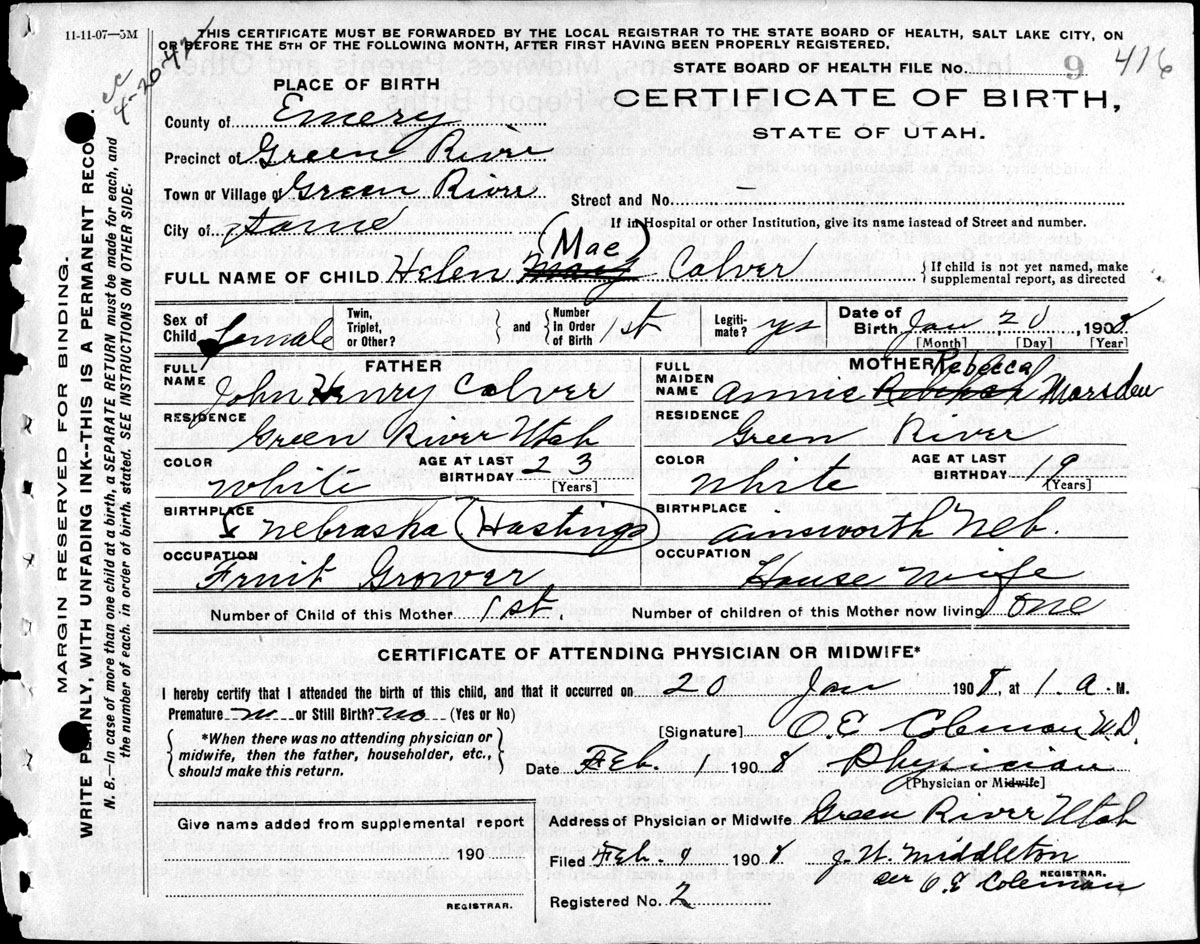 11-11-07—5M
THIS CERTIFICATE MUST BE FORWARDED BY THE LOCAL REGISTRAR TO THE STATE BOARD OF HEALTH, SALT LAKE CITY, ON
OR BEFORE THE 5TH OF THE FOLLOWING MONTH, AFTER FIRST HAVING BEEN PROPERLY REGISTERED.
4-20-42
STATE BOARD OF HEALTH FILE No. 9 416
PLACE OF BIRTH
CERTIFICATE OF BIRTH,
STATE OF UTAH.
County of Emery
Precinct of Green River
Town or Village of Green River
Street and No. —
City of Same
If in Hospital or other Institution, give its name instead of Street and number.
(Mae)
FULL NAME OF CHILD Helen Mary Colver
{ If child is not yet named, make supplemental report, as directed
Sex of Child Female
Twin, Triplet, or Other?
and { Number In Order of Birth 1st
Legiti-mate? ys
Date of Birth Jan 20, 1908
[Month] [Day] [Year]
FATHER
FULL NAME John Henry Colver
RESIDENCE
Green River Utah
COLOR White
AGE AT LAST BIRTHDAY 23
[Years]
BIRTHPLACE
Nebraska (Hastings)
OCCUPATION
Fruit Grower
MOTHER
Rebecca
FULL MAIDEN NAME Annie Marsden
RESIDENCE
Green River
COLOR White
AGE AT LAST BIRTHDAY 19
[Years]
BIRTHPLACE
Ainsworth Neb.
OCCUPATION
House Wife
Number of Child of this Mother 1st
Number of children of this Mother now living one
CERTIFICATE OF ATTENDING PHYSICIAN OR MIDWIFE*
I hereby certify that I attended the birth of this child, and that it occurred on 20 Jan 1908, at 1 A M.
Premature no or Still Birth? no (Yes or No)
*When there was no attending physician or
midwife, then the father, householder, etc.,
should make this return.
[Signature] O.E. Coleman M.D.
Date Feb. 1 1908 Physician
[Physician or Midwife]
Give name added from supplemental report
190
REGISTRAR.
Address of Physician or Midwife Green River Utah
Filed Feb. 1 1908 J.W. Middleton
REGISTRAR.
per O.E. Coleman
Registered No. 2
MARGIN RESERVED FOR BINDING.
WRITE PLAINLY, WITH UNFADING INK--THIS IS A PERMANENT RECO
N. B.—In case of more than one child at a birth, a SEPARATE RETURN must be made for each, and
the number of each, in order of birth, stated. SEE INSTRUCTIONS ON OTHER SIDE.